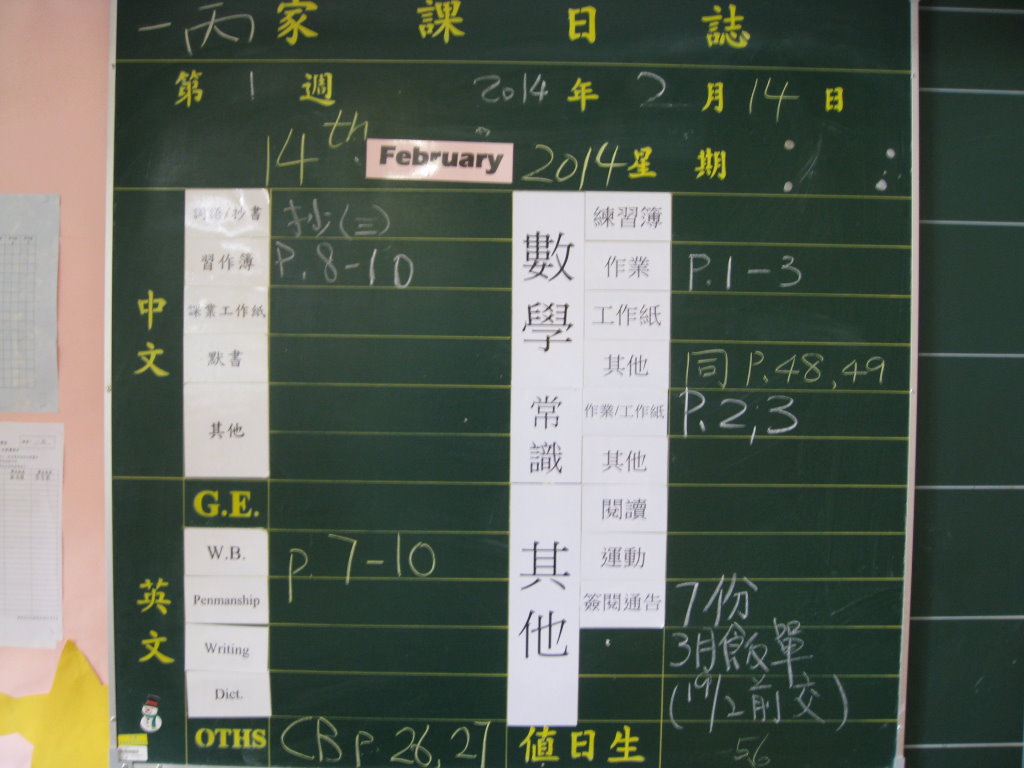 一丙 家課日誌
第 1 週 2014 年 2 月 14 日
14th February 2014 星期
中文
詞語/抄書 抄(三)
習作簿 P.8-10
課業工作紙
默書
其他
英文
G.E.
W.B. p.7-10
Penmanship
Writing
Dict.
OTHS CB p.26,27
數學
練習簿
作業 P.1-3
工作紙
其他 同 P.48,49
常識
作業/工作紙 P.2,3
其他
其他
閱讀
運動
簽閱通告 7份
3月飯單
(19/2前交)
值日生 56